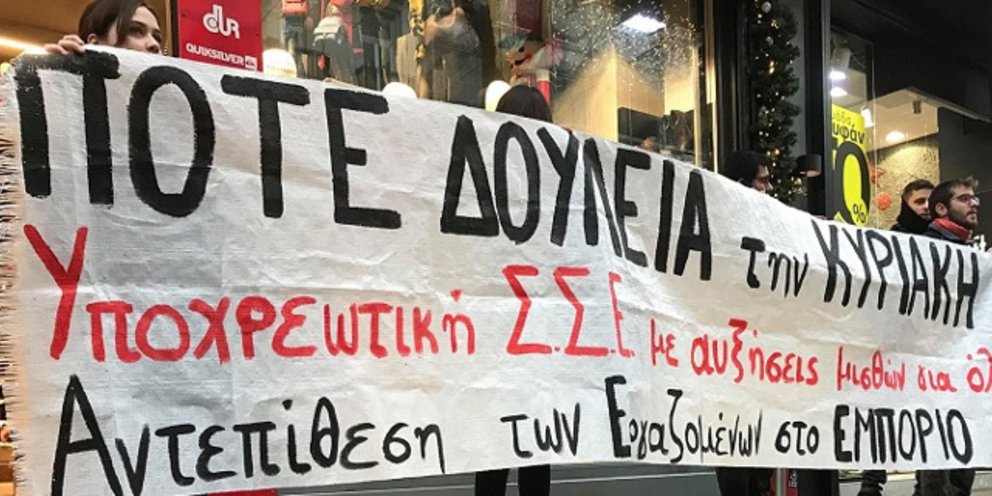 dUR
QUIKSILVER
ΠΟΤΕ ΔΟΥΛΕΙΑ την ΚΥΡΙΑΚΗ
Υποχρεωτική Σ.Σ.Ε. με αυξήσεις μισθών για
Αντεπίθεση των Εργαζομένων στο ΕΜΠΟΡΙΟ